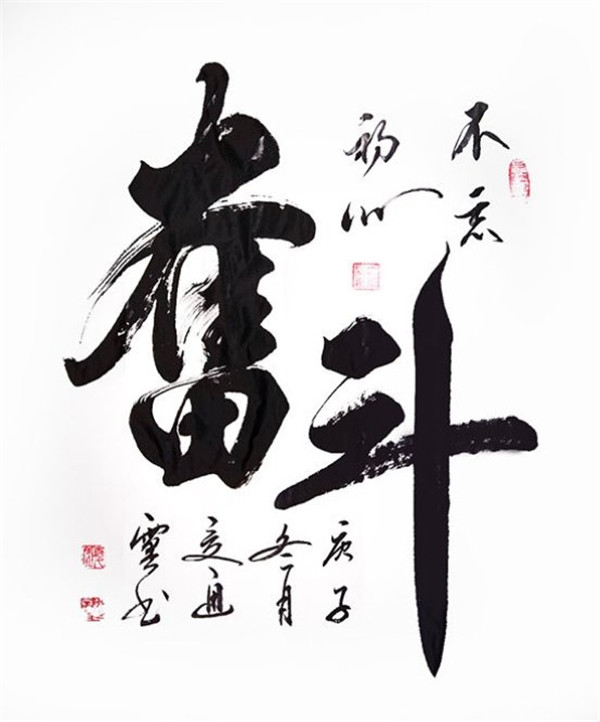 奮斗
不忘
初心
庚子
冬月
雲书